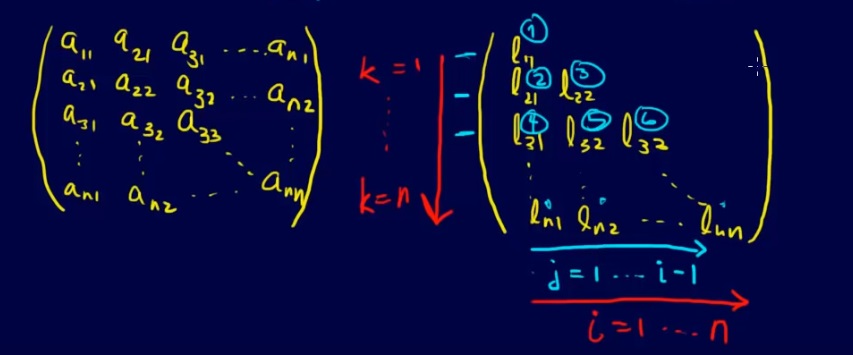 a₁₁ a₂₁ a₃₁ ..... aₙ₁
a₂₁ a₂₂ a₃₂ ... aₙ₂
a₃₁ a₃₂ a₃₃
aₙ₁ aₙ₂ ..... aₙₙ
k = 1
k = n
l₁₁ ①
l₂₁ ② l₂₂ ③
l₃₁ ④ l₃₂ ⑤ l₃₃ ⑥
lₙ₁ lₙ₂ ... lₙₙ
j = 1 .... i-1
i = 1 .... n